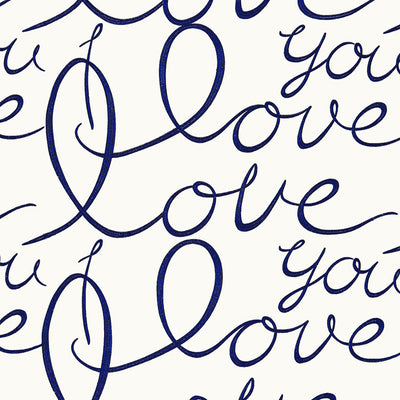 you
I love
love
you
I love